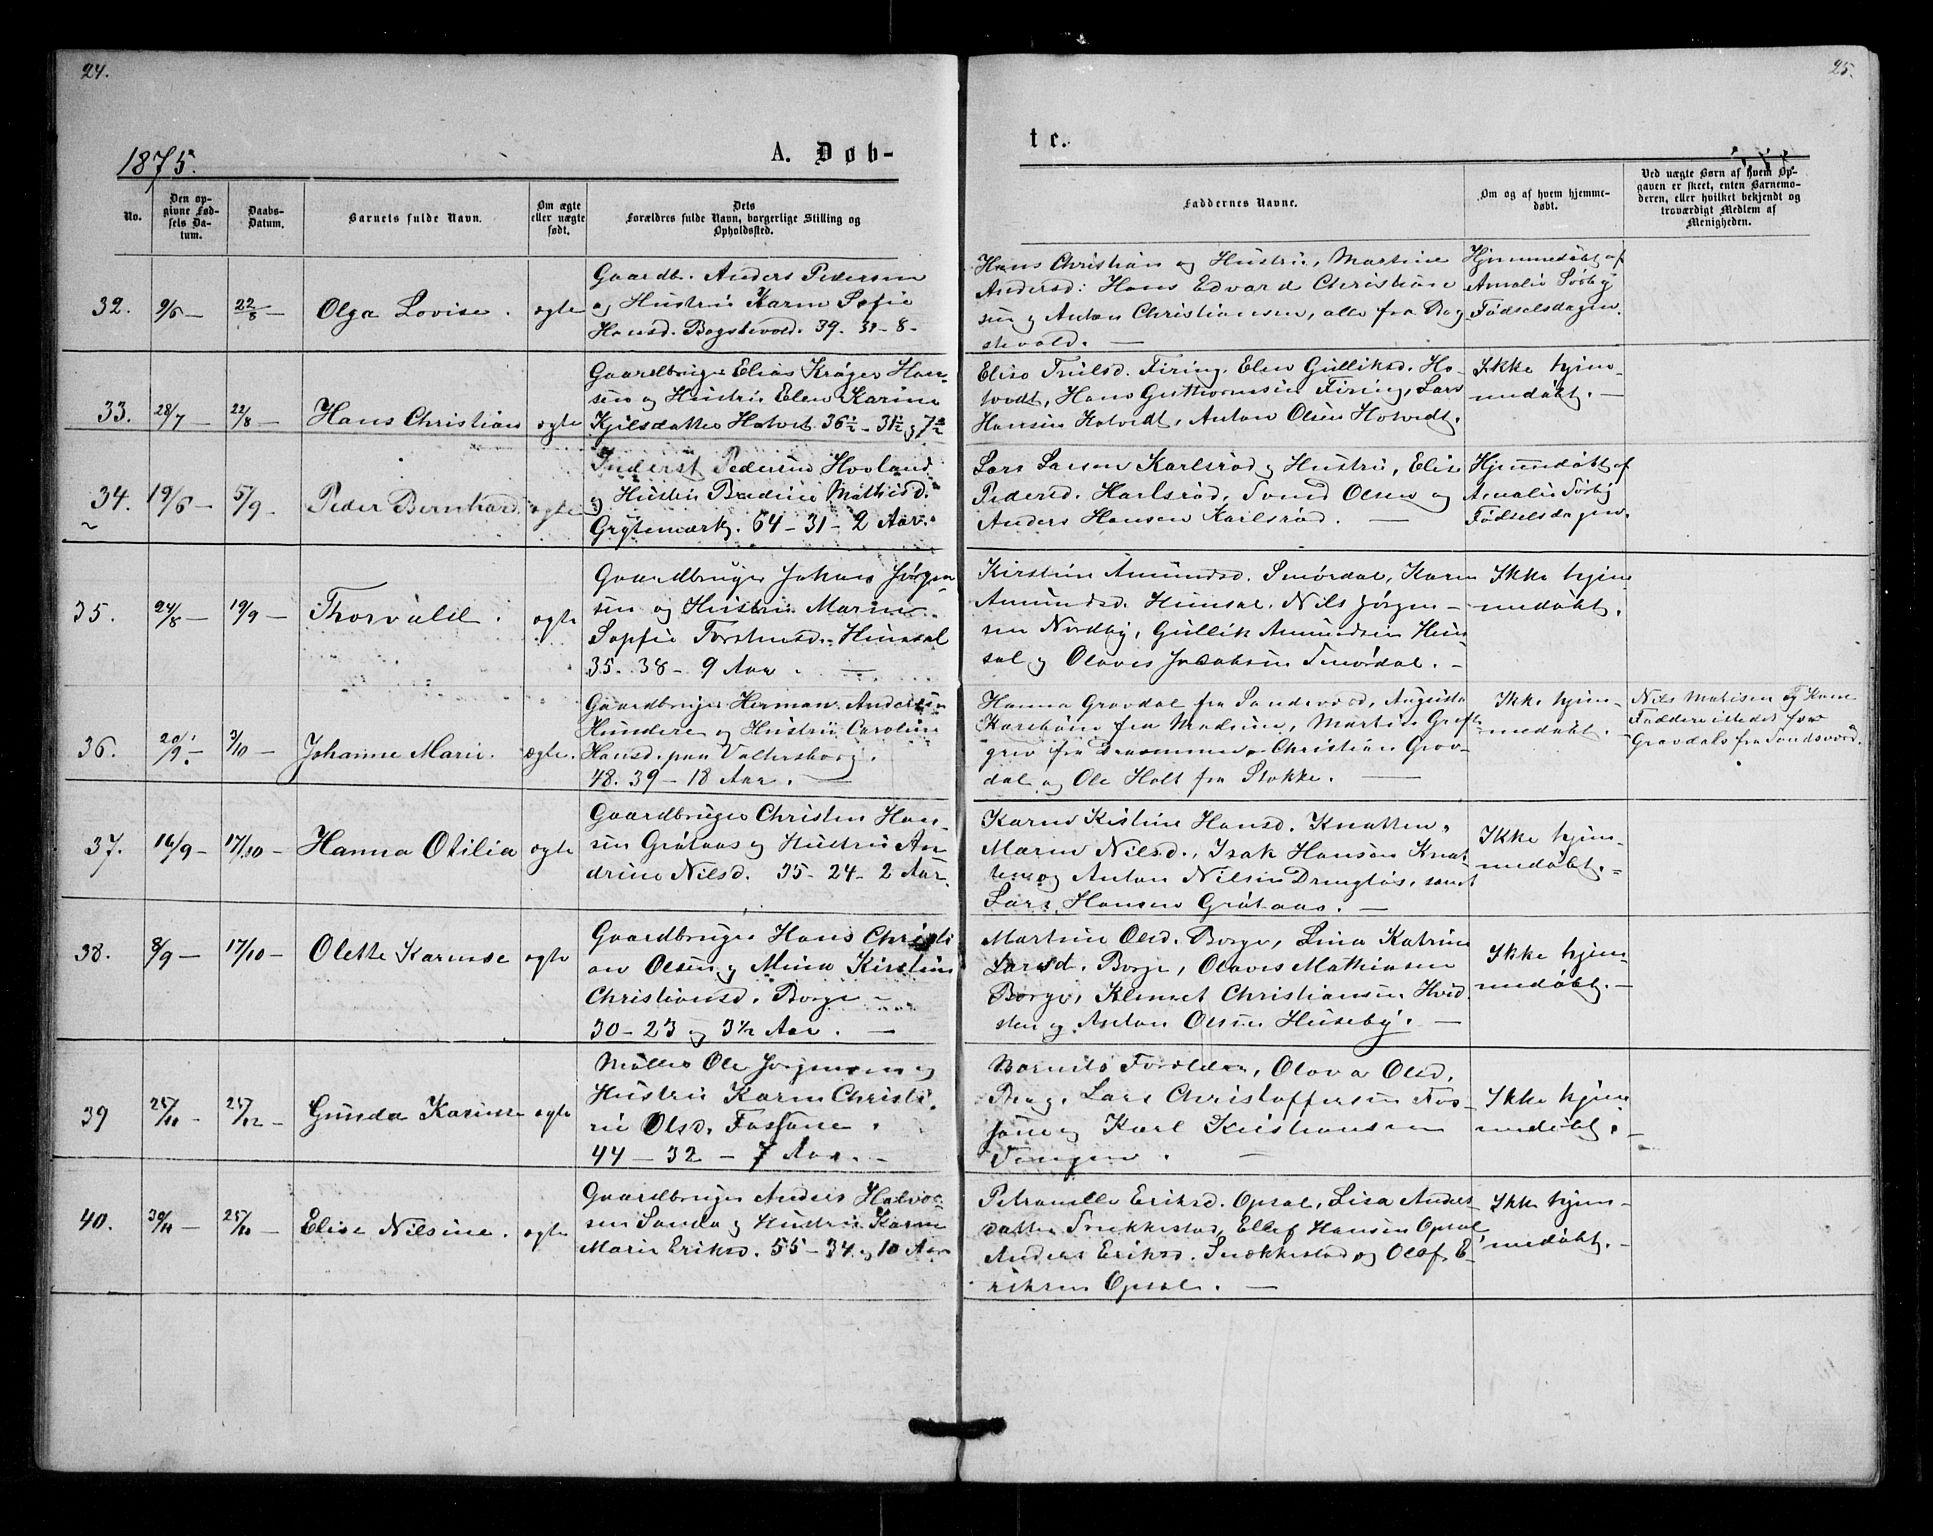 24.
25.
1875.
A. Døb-
te.
No.
Den op-
givne Fød-
sels Da-
tum.
Daabs-
Datum.
Barnets fulde Navn.
Om ægte
eller uægte
født.
Dets
Forældres fulde Navn, borgerlige Stilling og
Opholdssted.
Faddernes Navne.
Om og af hvem hjemme-
døbt.
Ved uægte Børn af hvem Op-
gaven er skeet, enten Barnemo-
deren, eller hvilket bekjendt og
troværdigt Medlem af
Menigheden.
32. 9/6 — 22/8 — Olga Lovise. ægte
Gaardb. Anders Pedersen
og Hustru Karen Sofie
Hansd. Bogstevold. 39. 31 - 8 -
Hans Christian og Hustru, Martine
Andersd: Hans Edvard Christian
sen og Anton Christiansen, alle fra Bog
stevold. —
Hjemmedøbt af
Amalie Sørby
Fødselsdagen.
33. 28/7 — 22/8 — Hans Christian ægte
Gaardbruger Elias Krøger Han-
sen og Hustru Elen Karine
Kjilsdatter Hotvet 36½ - 31½ og 7½
Elise Truls­d. Firing, Elen Gulliksd. Ho-
tvedt, Hans Guthormsen Firing, Lars
Hansen Hotvedt, Anton Olsen Hotvedt.
Ikke hjem-
medøbt. —
34. 19/6 — 5/9 — Peder Bernhard ægte
Inderst Pedersen Hovland
og Hustru Bredine Mathisd.
Grytemark. 64 - 31 - 2 Aar.
Lars Larsen Karlsrød og Hustru, Elise
Pedersd. Karlsrød, Olsen og
Anders Hansen Karlsrød. —
Hjemmedøbt af
Amalie Sørby
Fødselsdagen.
35. 24/8 — 19/9 — Thorvald. ægte
Gaardbruger Johan Jørgen-
sen og Hustru Maren
Sopfie Torstensd. Himsal
35. 38 - 9 Aar. —
Kirstine Amundsd. Smørdal, Karen
Amundsd. Himsal, Nils Jørgen-
sen Nordby, Gullik Amundsen Him
sal og Olaves Jacobsen Smørdal. -
Ikke hjem
medøbt.
36. 20/9 — 3/10 — Johanne Marie. ægte.
Gaardbruger Herman Andersen
Hundere og Hustru Caroline
Hansd. paa Valtersborg.
48. 39 - 18 Aar. —
Hanna Gravdal fra Sandeverd, Augusta
fra Madsine, Martin Graft
grev fra Drammen, Christian Grav-
dal og Ole Holt fra Stokke. —
Ikke hjem-
medøbt. -
Nils Matisen og Kone
for
Gravdals fra Sandeverd.
37. 16/9 — 17/10 — Hanna Otilia ægte
Gaardbruger Christen Han-
sen Gråtaas og Hustru An-
drine Nilsd. 35 - 24 - 2 Aar.
Karen Kistine Hansd. Knatten,
Maren Nilsd., Isak Hansen Knat
ten og Anton Nilsen samt
Lars Hansen Gråtaas. —
Ikke hjem-
medøbt. -
38. 8/9 — 17/10 — Olette Karense ægte
Gaardbruger Hans Christi
an Olsen og Mina Kirstine
Christiansd. Borge -
30 - 23 og 3½ Aar. —
Martine Olsd. Borge, Lina Katrine
Larsd. Borge, Olaves Mathiasen
Borge, Klemet Christiansen Hvid
sten og Anton Olsen Huseby. —
Ikke hjem-
medøbt. —
39 25/11 — 25/12 — Gunda Karense ægte
Møller Ole Jørgensen og
Hustru Karen Christi
ne Olsd. Fossane.
44 - 32 - 7 Aar. -
Barnets Forældre, Olava Olsd.
Berg, Lars Christoffersen Fos-
sane og Karl Kristiansen
Tangen. —
Ikke hjem
medøbt. -
40. 30/11 — 25/12 — Elise Nilsine. ægte
Gaardbruger Anders Halvor
sen Sanda og Hustru Karen
Marie Eriksd. 55 - 34 og 10 Aar
Petronelle Eriksd. Opsal, Lisa Anders
datter Snekkestad, Ellef Hansen Opsal
Anders Eriksd. Snekkestad og Olaf E-
riksen Opsal. —
Ikke hjem-
medøbt. -